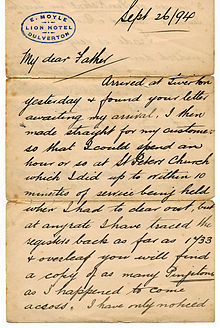 E. MOYLE
LION HOTEL
DULVERTON
Sept 26/94
My dear Father
Arrived at Tiverton
yesterday & found your letter
awaiting my arrival, I then
made straight for my customers
so that I could spend an
hour or so at St Peters Church
which I did up to within 10
minutes of service being held
when I had to clear out, but
at any rate I have traced the
registers back as far as 1733
& overleaf you will find
a copy of as many
as I happened to come
across. I have only noticed